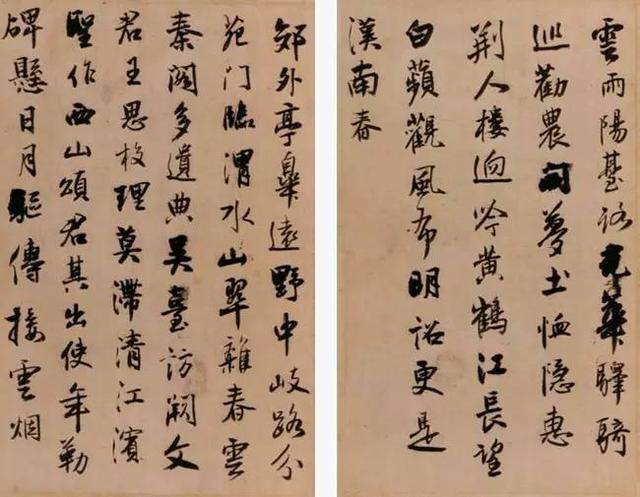 雲雨陽臺路光華驛騎
巡勸農開夢土恤隱惠
荆人樓迥吟黄鶴江長望
白蘋觀風布明詔更是
漢南春
郊外亭臯遠野中岐路分
苑门臨渭水山翠雜春雲
秦閣多遺典吴臺訪闕文
君王思校理莫滯清江濱
聖作西山頌君其出使年勒
碑懸日月驅傳接雲烟